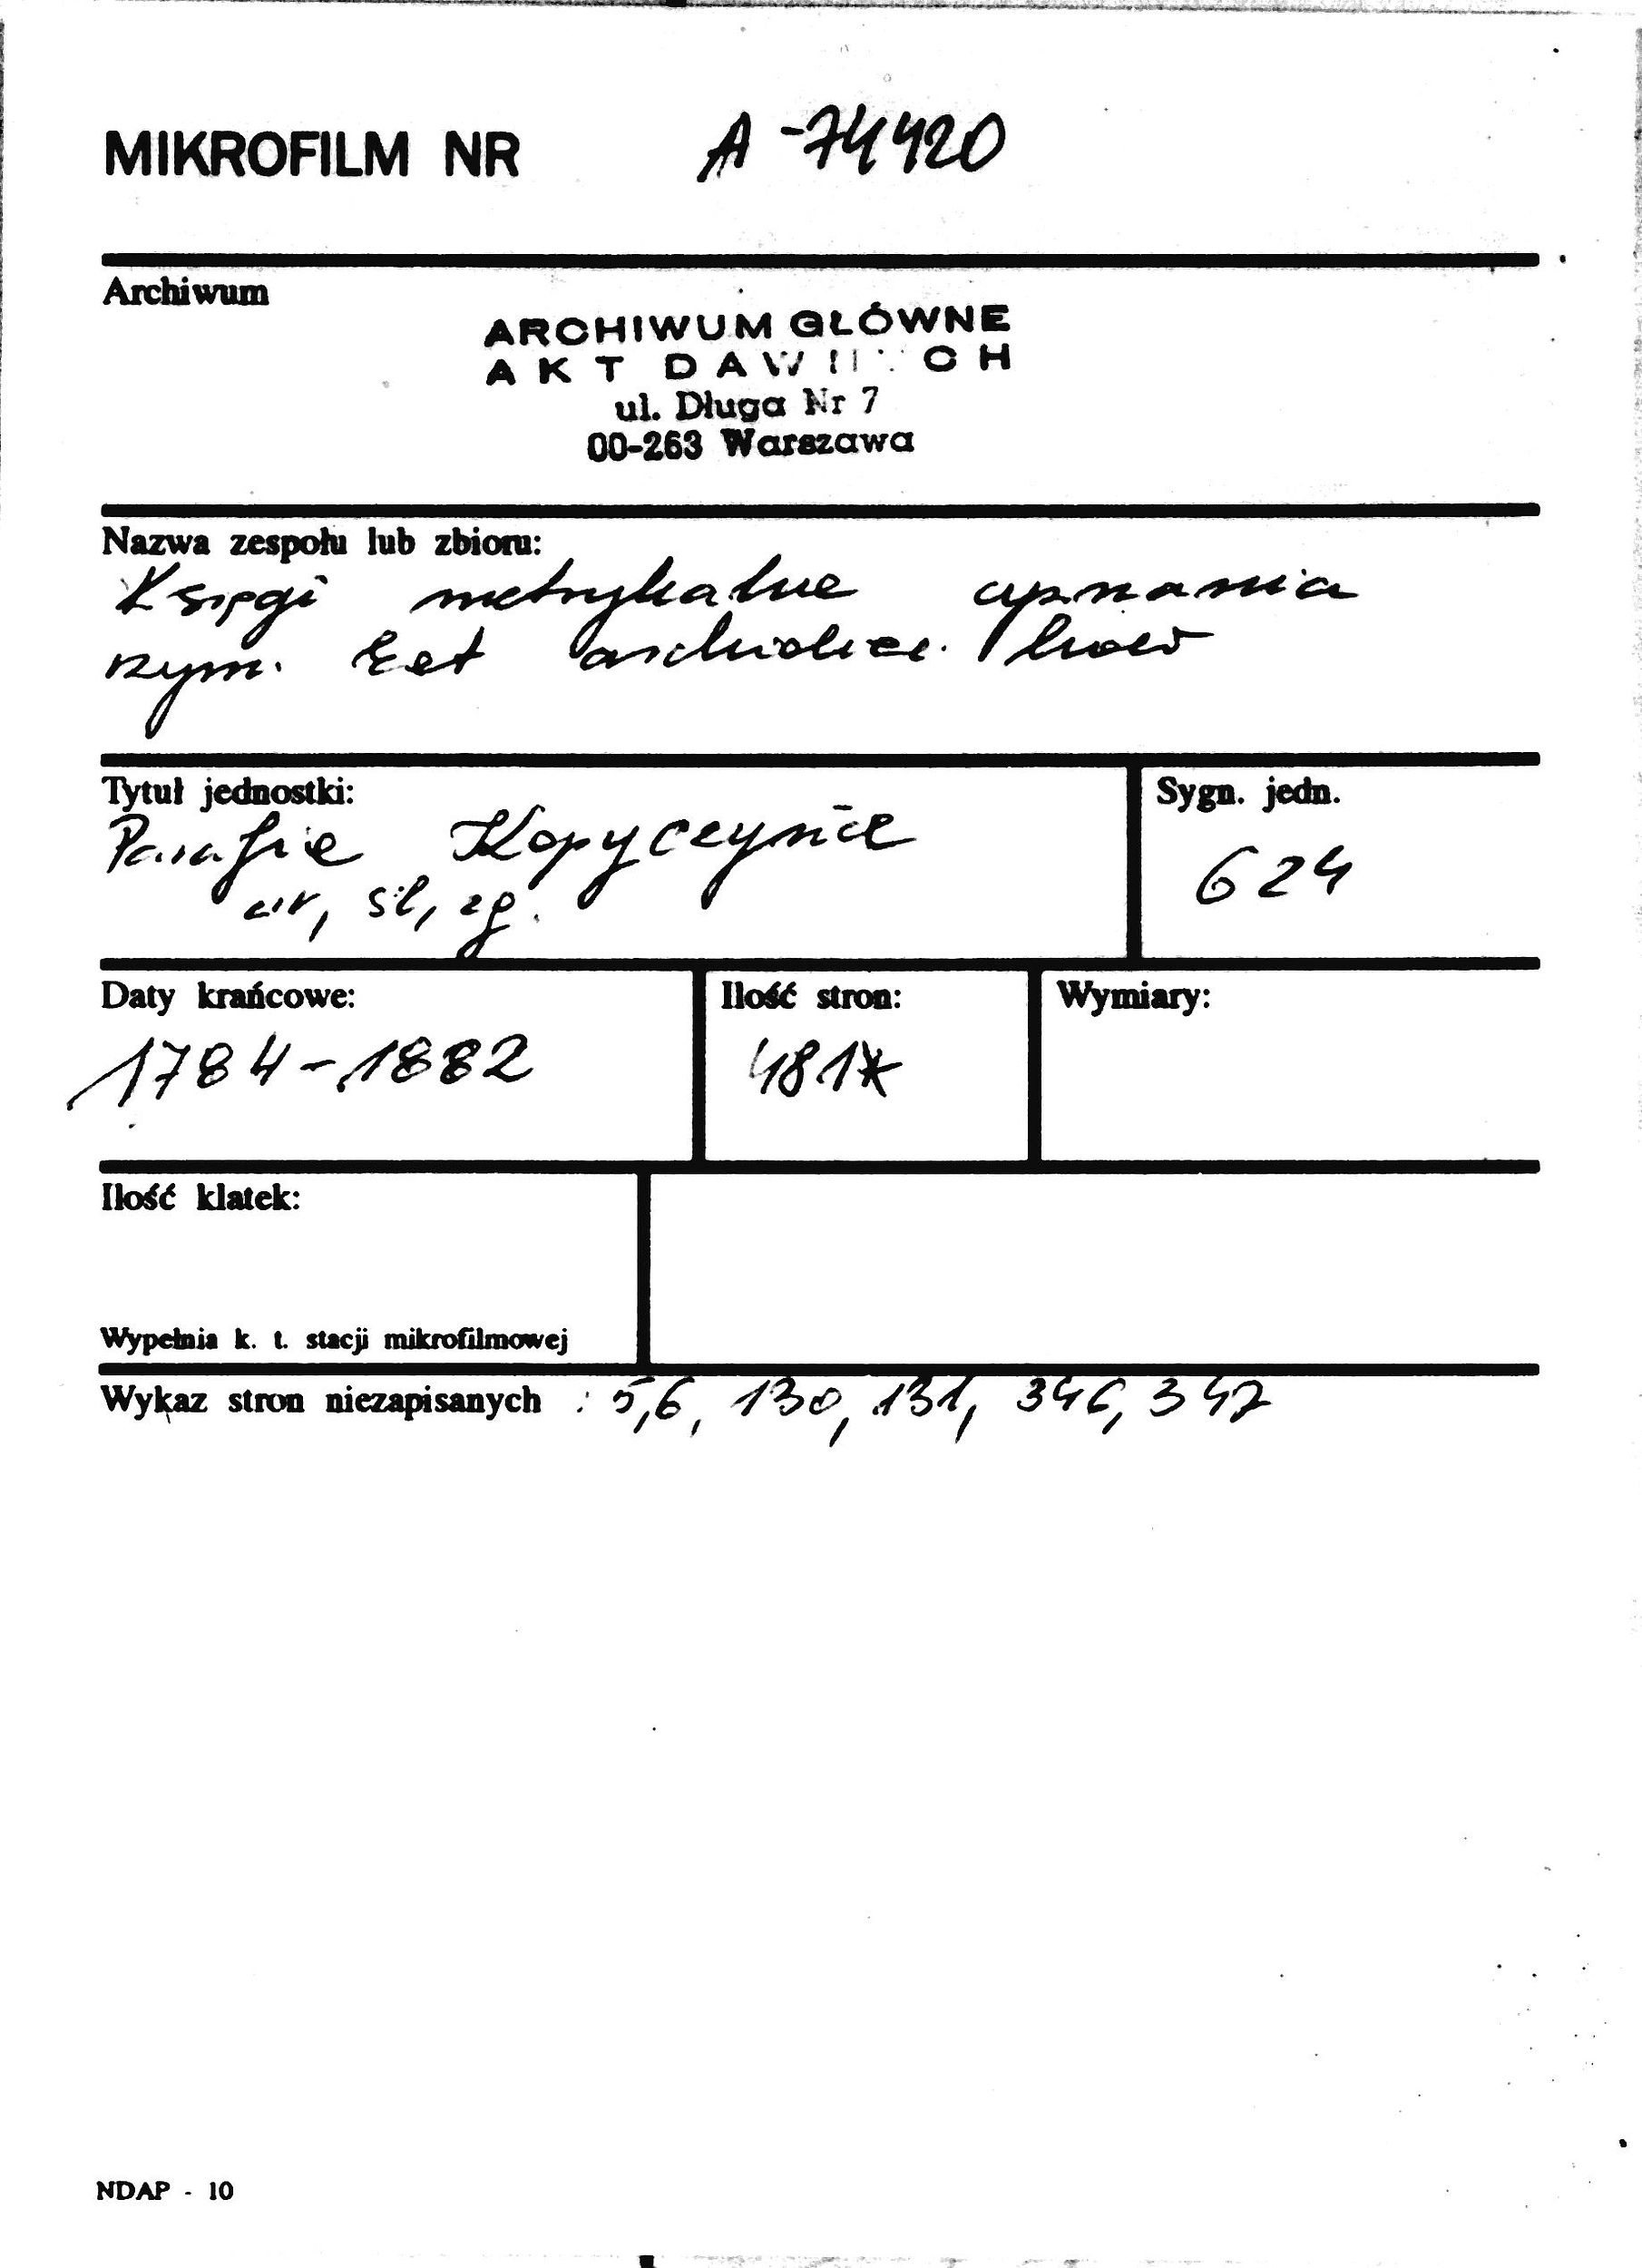 MIKROFILM NR A-74420
Archiwum
ARCHIWUM GŁÓWNE
AKT DAWNYCH
ul. Długa Nr 7
00-263 Warszawa
Nazwa zespołu lub zbioru:
Księgi metrykalne wyznania
rzym. kat archidiec. lwow
Tytuł jednostki: Sygn. jedn.
Parafie Kopyczyńce 624
ur, śl, zg.
Daty krańcowe: Ilość stron: Wymiary:
1784-1882 481*
Ilość klatek:
Wypełnia k. t. stacji mikrofilmowej
Wykaz stron niezapisanych : 5,6, 130, 131, 346, 347
NDAP - 10